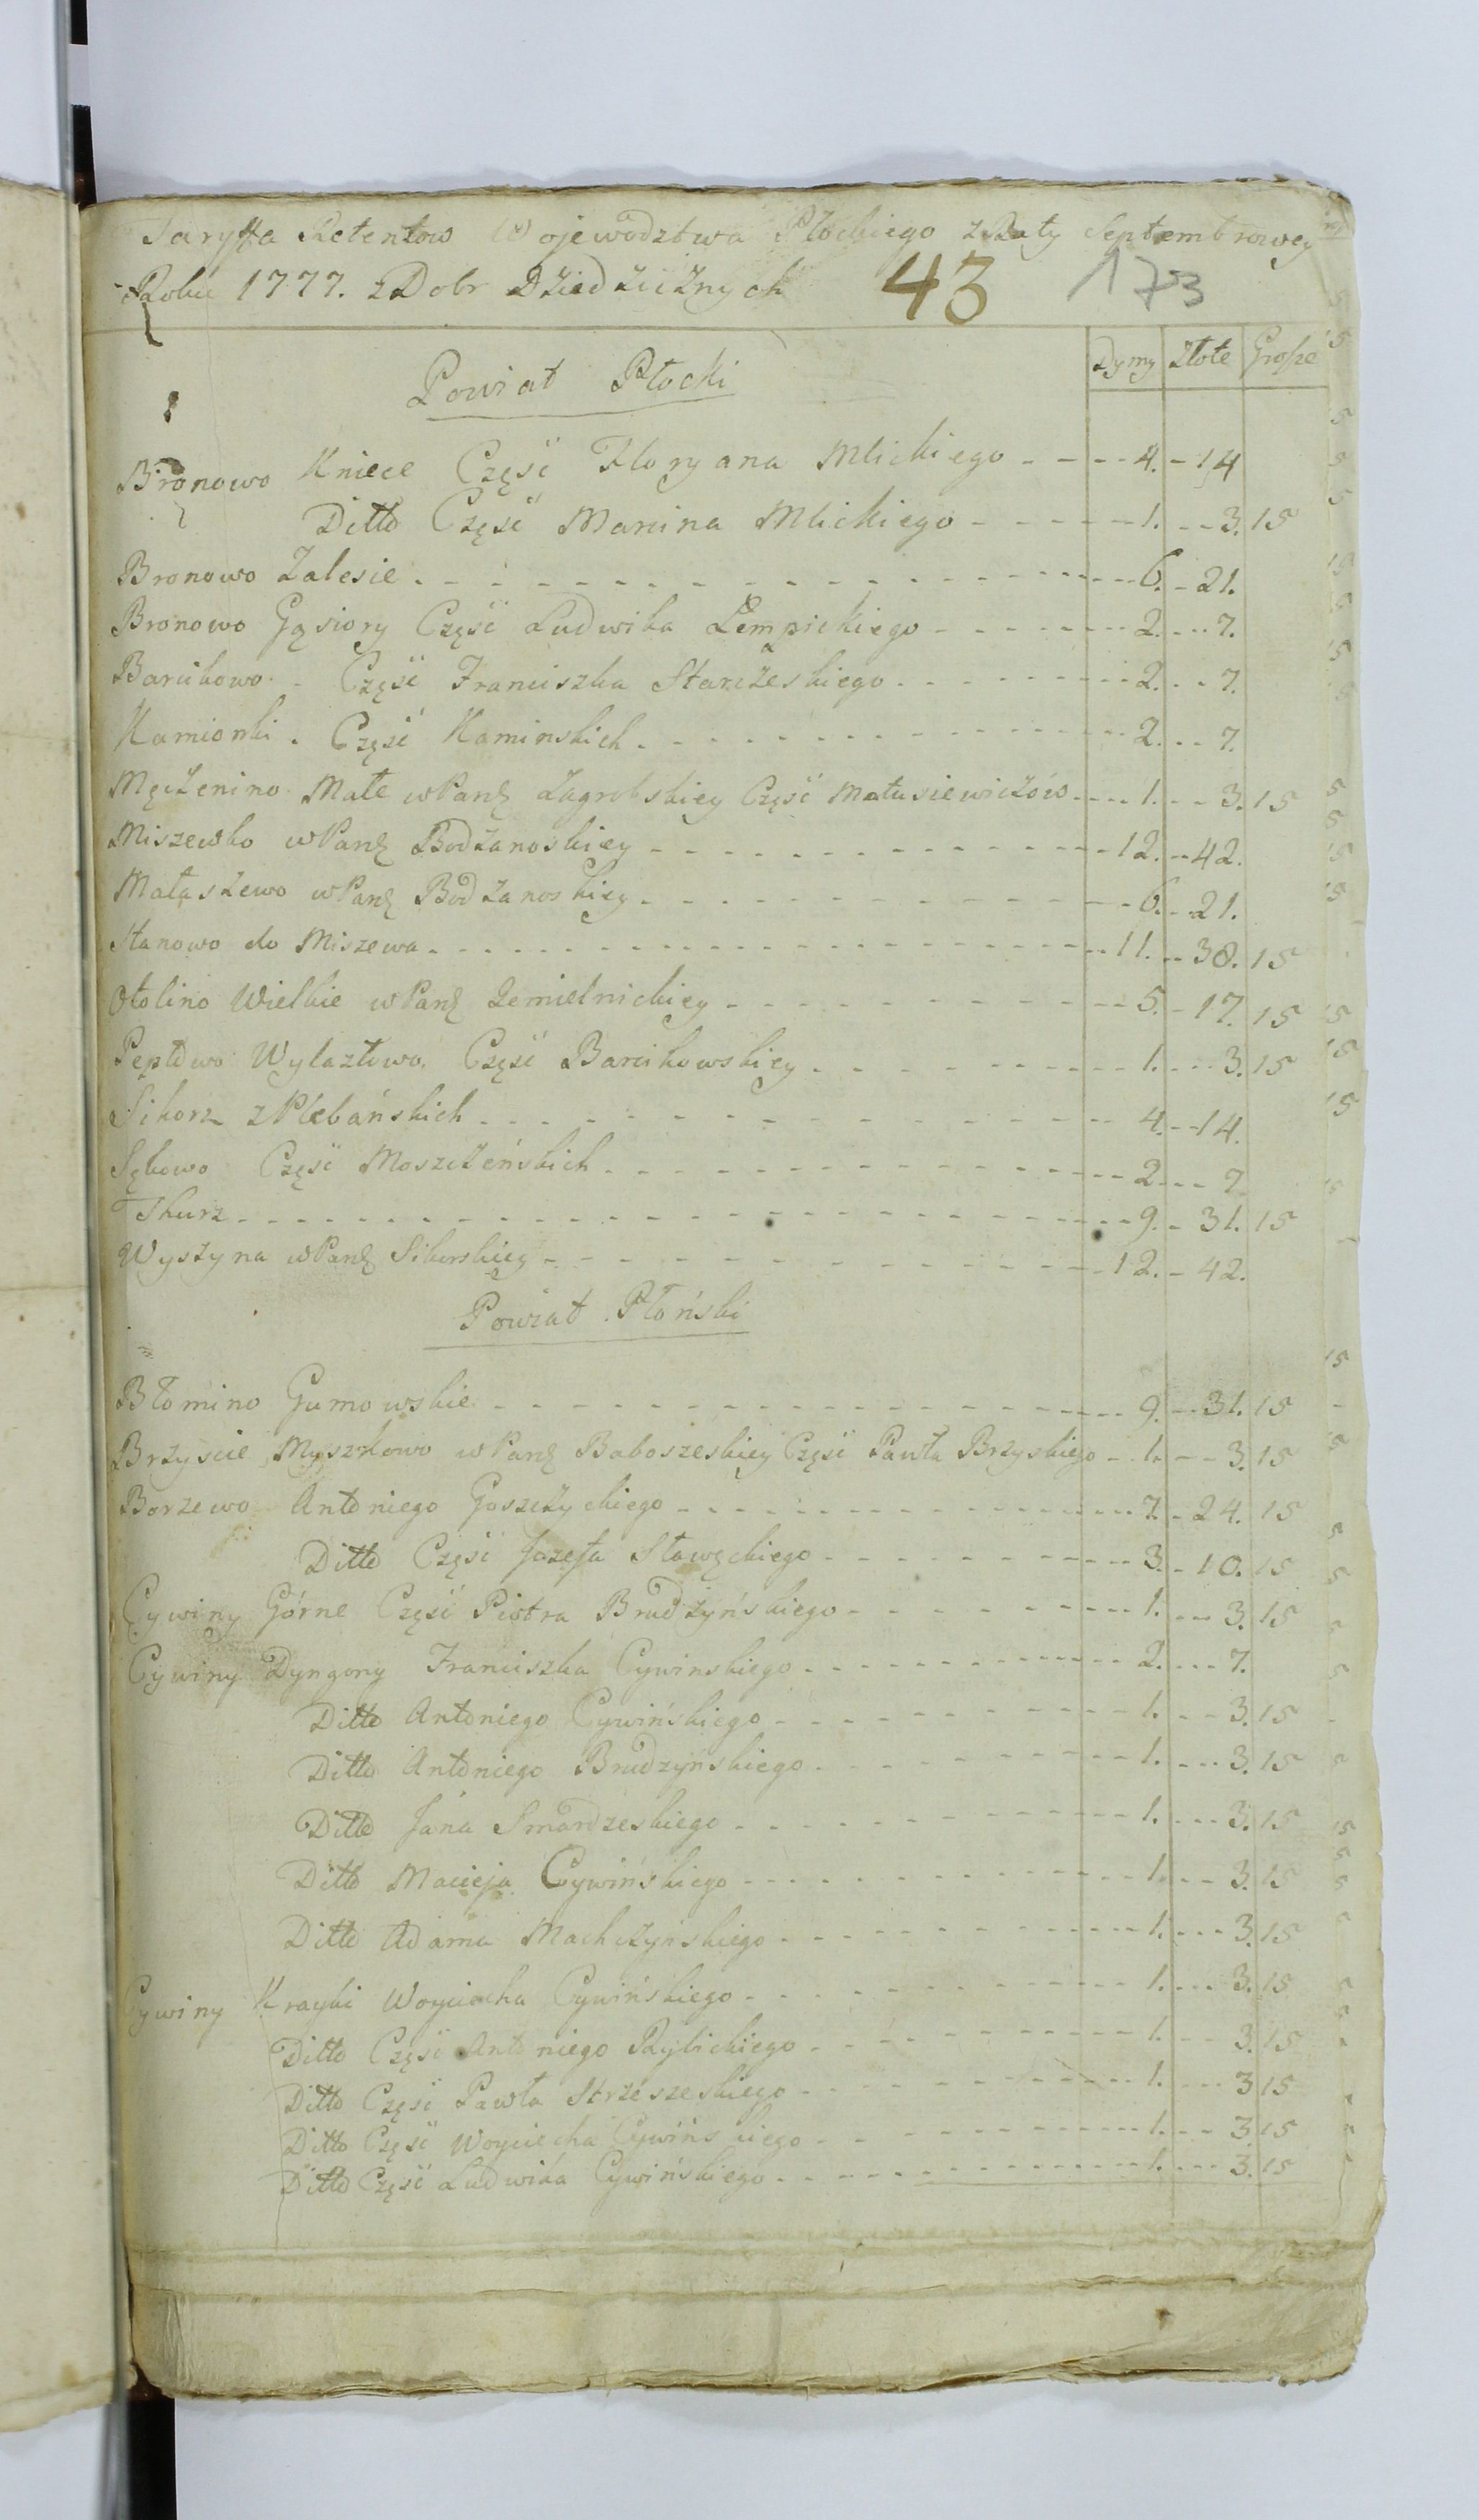 Taryffa Retentow Wojewodztwa Płockiego z Raty Septembrowey
Roku 1777. z Dobr Dziedzicznych 43 173
Powiat Płocki Dymy Złote Grosze
Bronowo Kniece Część Floryana Mlickiego - - - - 4. - 14
Ditto Część Marcina Mlickiego - - - - - - 1. - - - 3. 15
Bronowo Zalesie - - - - - - 6. - 21.
Bronowo Gąsiory Część Ludwika Łempickiego - - - - - - 2. - - - 7.
Barcikowo - Część Franciszka Starczeskiego - - - - - - 2. - - - 7.
Kamionki . Część Kaminskich - - - - - - 2. - - - 7.
Męczenino Małe w Parafii Zagrobskiey Część Matusiewiczów - - - - 1. - - - 3. 15
Miszewko w Parafii Bodzanoskiey - - - - - - 12. - - 42.
Mataszewo w Parafii Bodzanoskiey - - - - - - 6. - - 21.
Stanowo do Miszewa - - - - - - 11. - - 38. 15
Otolino Wielkie w Parafii Łemielnickiey - - - - - - 5. - 17. 15
Peptowo Wylaztowo. Część Barcikowskiey - - - - - - 1. - - - 3. 15
Sikorz z Plebańskich - - - - - - 4. - - 14.
Sękowo Część Moszczeńskich - - - - - - 2. - - - 7
Thurz - - - - - - 9. - 31. 15
Wyszyna w Parafii Sikorskiey - - - - - - 12. - 42.
Powiat Płoński
Błomino Gumowskie - - - - - - 9. - - 31. 15
Brzyscie Myszkowo w Parafii Baboszeskiey Część Pawła Brzyskiego - 1. - - - 3. 15
Borzewo Antoniego Goszczyckiego - - - - - - 7. - 24. 15
Ditto Część Jozefa Stawęckiego - - - - - - 3. - 10. 15
Cywiny Górne Część Piotra Brudzyńskiego - - - - - - 1. - - - 3. 15
Cywiny Dyngony Franciszka Cywinskiego - - - - - - 2. - - - 7.
Ditto Antoniego Cywińskiego - - - - - - 1. - - - 3. 15
Ditto Antoniego Brudzynskiego - - - - - - 1. - - - 3. 15
Ditto Jana Smardzeskiego - - - - - - 1. - - - 3. 15
Ditto Macieja Cywińskiego - - - - - - 1. - - - 3. 15
Ditto Adama Machczyńskiego - - - - - - 1. - - - 3. 15
Cywiny Krayki Woyciecha Cywińskiego - - - - - - 1. - - - 3. 15
Ditto Część Antoniego Rylickiego - - - - - - 1. - - 3. 15
Ditto Część Pawła Strzeszeskiego - - - - - - 1. - - - 3 15
Ditto Część Woyciecha Cywińskiego - - - - - - 1. - - - 3 15
Ditto Część Ludwika Cywińskiego - - - - - - 1. - - - 3. 15